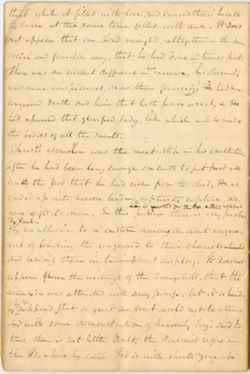 that while it filled with love and caused their hearts
to burn at the same time filled with awe. It does
not appear that our Lord mingled altogether with them in
social and familiar way, that he had done in times past.
There was an evident difference in manner, his divinity
was more conspicuous, more than formerly. He had
conquered death and him that hath power over it, & He
had assumed that glorified body, like which will be made
the bodies of all the saints.
Christ's ascension was the next step in his exaltation
after he had been long enough on earth to put past all
doubt the fact that he had risen from the dead, He as
cended up into heaven leading captivity captive, and
gave gift to men. In this passage there is very
an allusion to a custom among ancient conquer
ors of binding the conquered to their chariot wheels
and leading them in triumphant display. It does not
appear from the writings of the Evangelists, that the
ascension was attended with any pomp, but it is hard
to suppose that so great an event would not be atten
ded with some demonstration of heavenly joy: and to
this, there is but little doubt, the Psalmist refers in
the Ps. where he says God is with shouts gone up